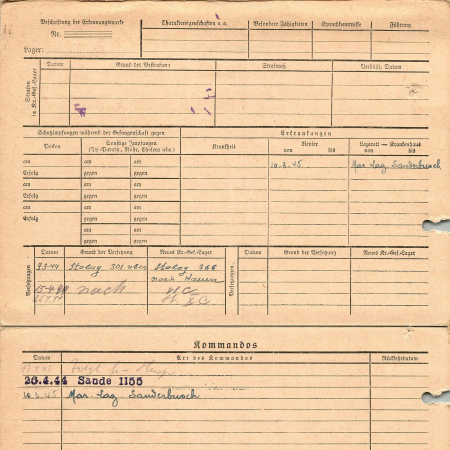 Beschriftung der Erkennungsmarke
Nr.
Lager:
Charaktereigenschaften u. a.
Besondere Fähigkeiten
Sprachkenntnisse
Führung
Strafen in Kr.-Gef.-Lager
Datum
Grund der Bestrafung
Strafmaß
Verbüßt, Datum
Schutzimpfungen während der Gefangenschaft gegen
Erkrankungen
Pocken
Sonstige Impfungen
(Ty.-Paraty., Ruhr, Cholera usw.)
Krankheit
Revier
von bis
Lazarett — Krankenhaus
von bis
am am am
10.3.45. Mar. Laz. Sanderbusch
Erfolg gegen gegen
am am am
Erfolg gegen gegen
am am am
Erfolg gegen gegen
am am
gegen gegen
am am
gegen gegen
Versetzungen
Datum
Grund der Versetzung
Neues Kr.-Gef.-Lager
Versetzungen
Datum
Grund der Versetzung
Neues Kr.-Gef.-Lager
Stalag 301 über Stalag 366
nach
X C
Kommandos
Datum
Art des Kommandos
Rückkehrdatum
26.4.44 Sande 1155
10.3.45 Mar. Laz. Sanderbusch